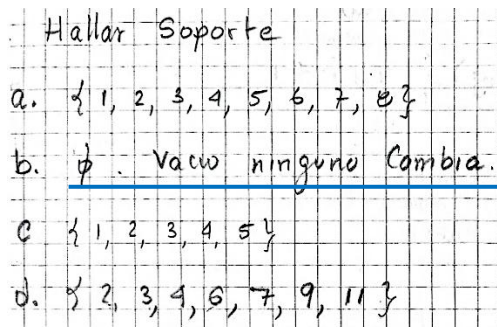 Hallar Soporte
a. { 1, 2, 3, 4, 5, 6, 7, 8 }
b. ϕ. Vacio ninguno Cambia.
c { 1, 2, 3, 4, 5 }
d. { 2, 3, 4, 6, 7, 9, 11 }